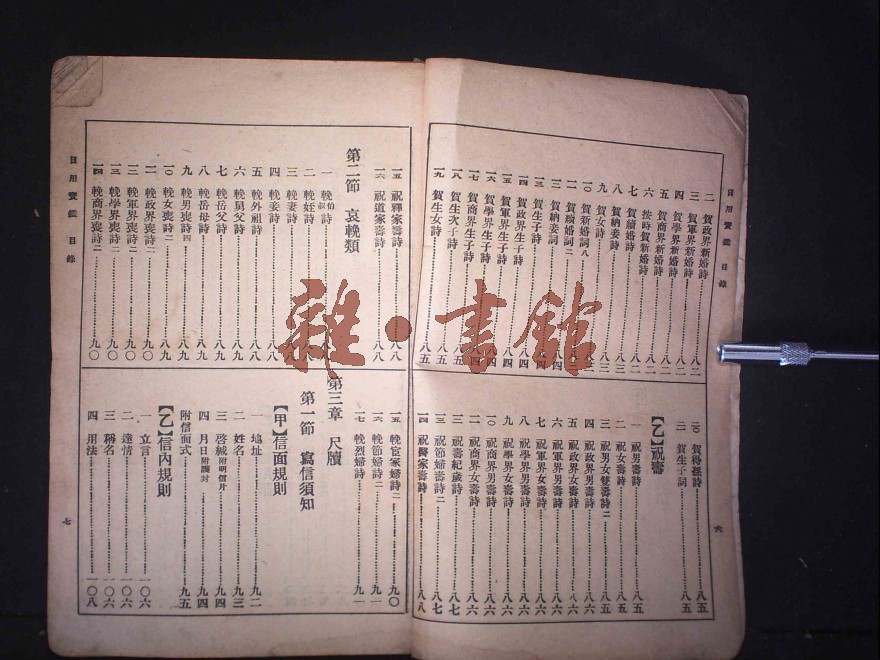 日用寶鑑 目錄
二 賀政界新婚詩 八二
三 賀軍界新婚詩 八二
四 賀學界新婚詩 八二
五 賀商界新婚詩 八二
六 按時賀新婚詩 八二
七 賀續婚詩
八 賀納妾詩 八三
九 賀女詩 八三
一〇 賀新婚詞八
一一 賀續婚詞二
一二 賀納妾詞
一三 賀生子詩
一四 賀政界生子詩 八四
一五 賀軍界生子詩 八四
一六 賀學界生子詩
一七 賀商界生子詩
一八 賀生次子詩 八五
一九 賀生女詩 八五
二〇 賀得孫詩 八五
二一 賀生子詞 八五
【乙】祝壽
一 祝男壽詩 八五
二 祝女壽詩 八五
三 祝男女雙壽詩二 八五
四 祝政界男壽詩 八六
五 祝政界女壽詩 八六
六 祝軍界男壽詩 八六
七 祝軍界女壽詩 八六
八 祝學界男壽詩 八六
九 祝學界女壽詩 八六
一〇 祝商界男壽詩 八六
一一 祝商界女壽詩 八六
一二 祝壽紀歲詩 八七
一三 祝節婦壽詩二 八七
一四 祝醫家壽詩 八八
六
一五 祝釋家壽詩 八八
一六 祝道家壽詩 八八
第二節 哀輓類
一 輓伯叔詩 八
二 輓姪詩
三 輓妻詩
四 輓妾詩
五 輓外祖詩 八八
六 輓舅父詩 八九
七 輓岳父詩 八九
八 輓岳母詩 八九
九 輓男喪詩四 八九
一〇 輓女喪詩二 八九
一一 輓政界喪詩二 九〇
一二 輓軍界喪詩二 九〇
一三 輓學界喪詩二 九〇
一四 輓商界喪詩二 九〇
一五 輓官家婦詩二 九〇
一六 輓節婦詩二 九一
一七 輓烈婦詩 九一
第三章 尺牘
第一節 寫信須知
【甲】信面規則
一 地址 九二
二 姓名 九三
三 啓緘附明信片 九四
四 月日附護封 九四
附信面式 九五
【乙】信內規則
一 立言 一〇六
二 達情 一〇六
三 稱名 一〇六
四 用法 一〇八
日用寶鑑 目錄
七
雜·書館